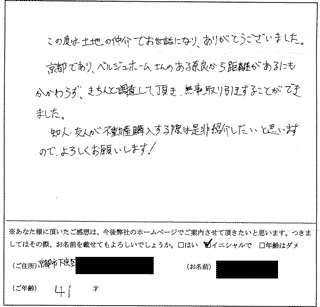 この度は土地の仲介でお世話になり、ありがとうございました。
京都であり、ベルジュホームさんのある奈良から距離があるにも
かかわらず、きちんと調査して頂き、無事取り引きすることができ
ました。
知人・友人が不動産購入する際は是非紹介したいと思います
ので、よろしくお願いします!
※あなた様に頂いたご感想は、今後弊社のホームページでご案内させて頂きたいと思います。つきま
してはその際、お名前を載せてもよろしいでしょうか。□はい ☑イニシャルで □年齢はダメ
(ご住所)京都市下京区 (お名前)
(ご年齢) 41 才